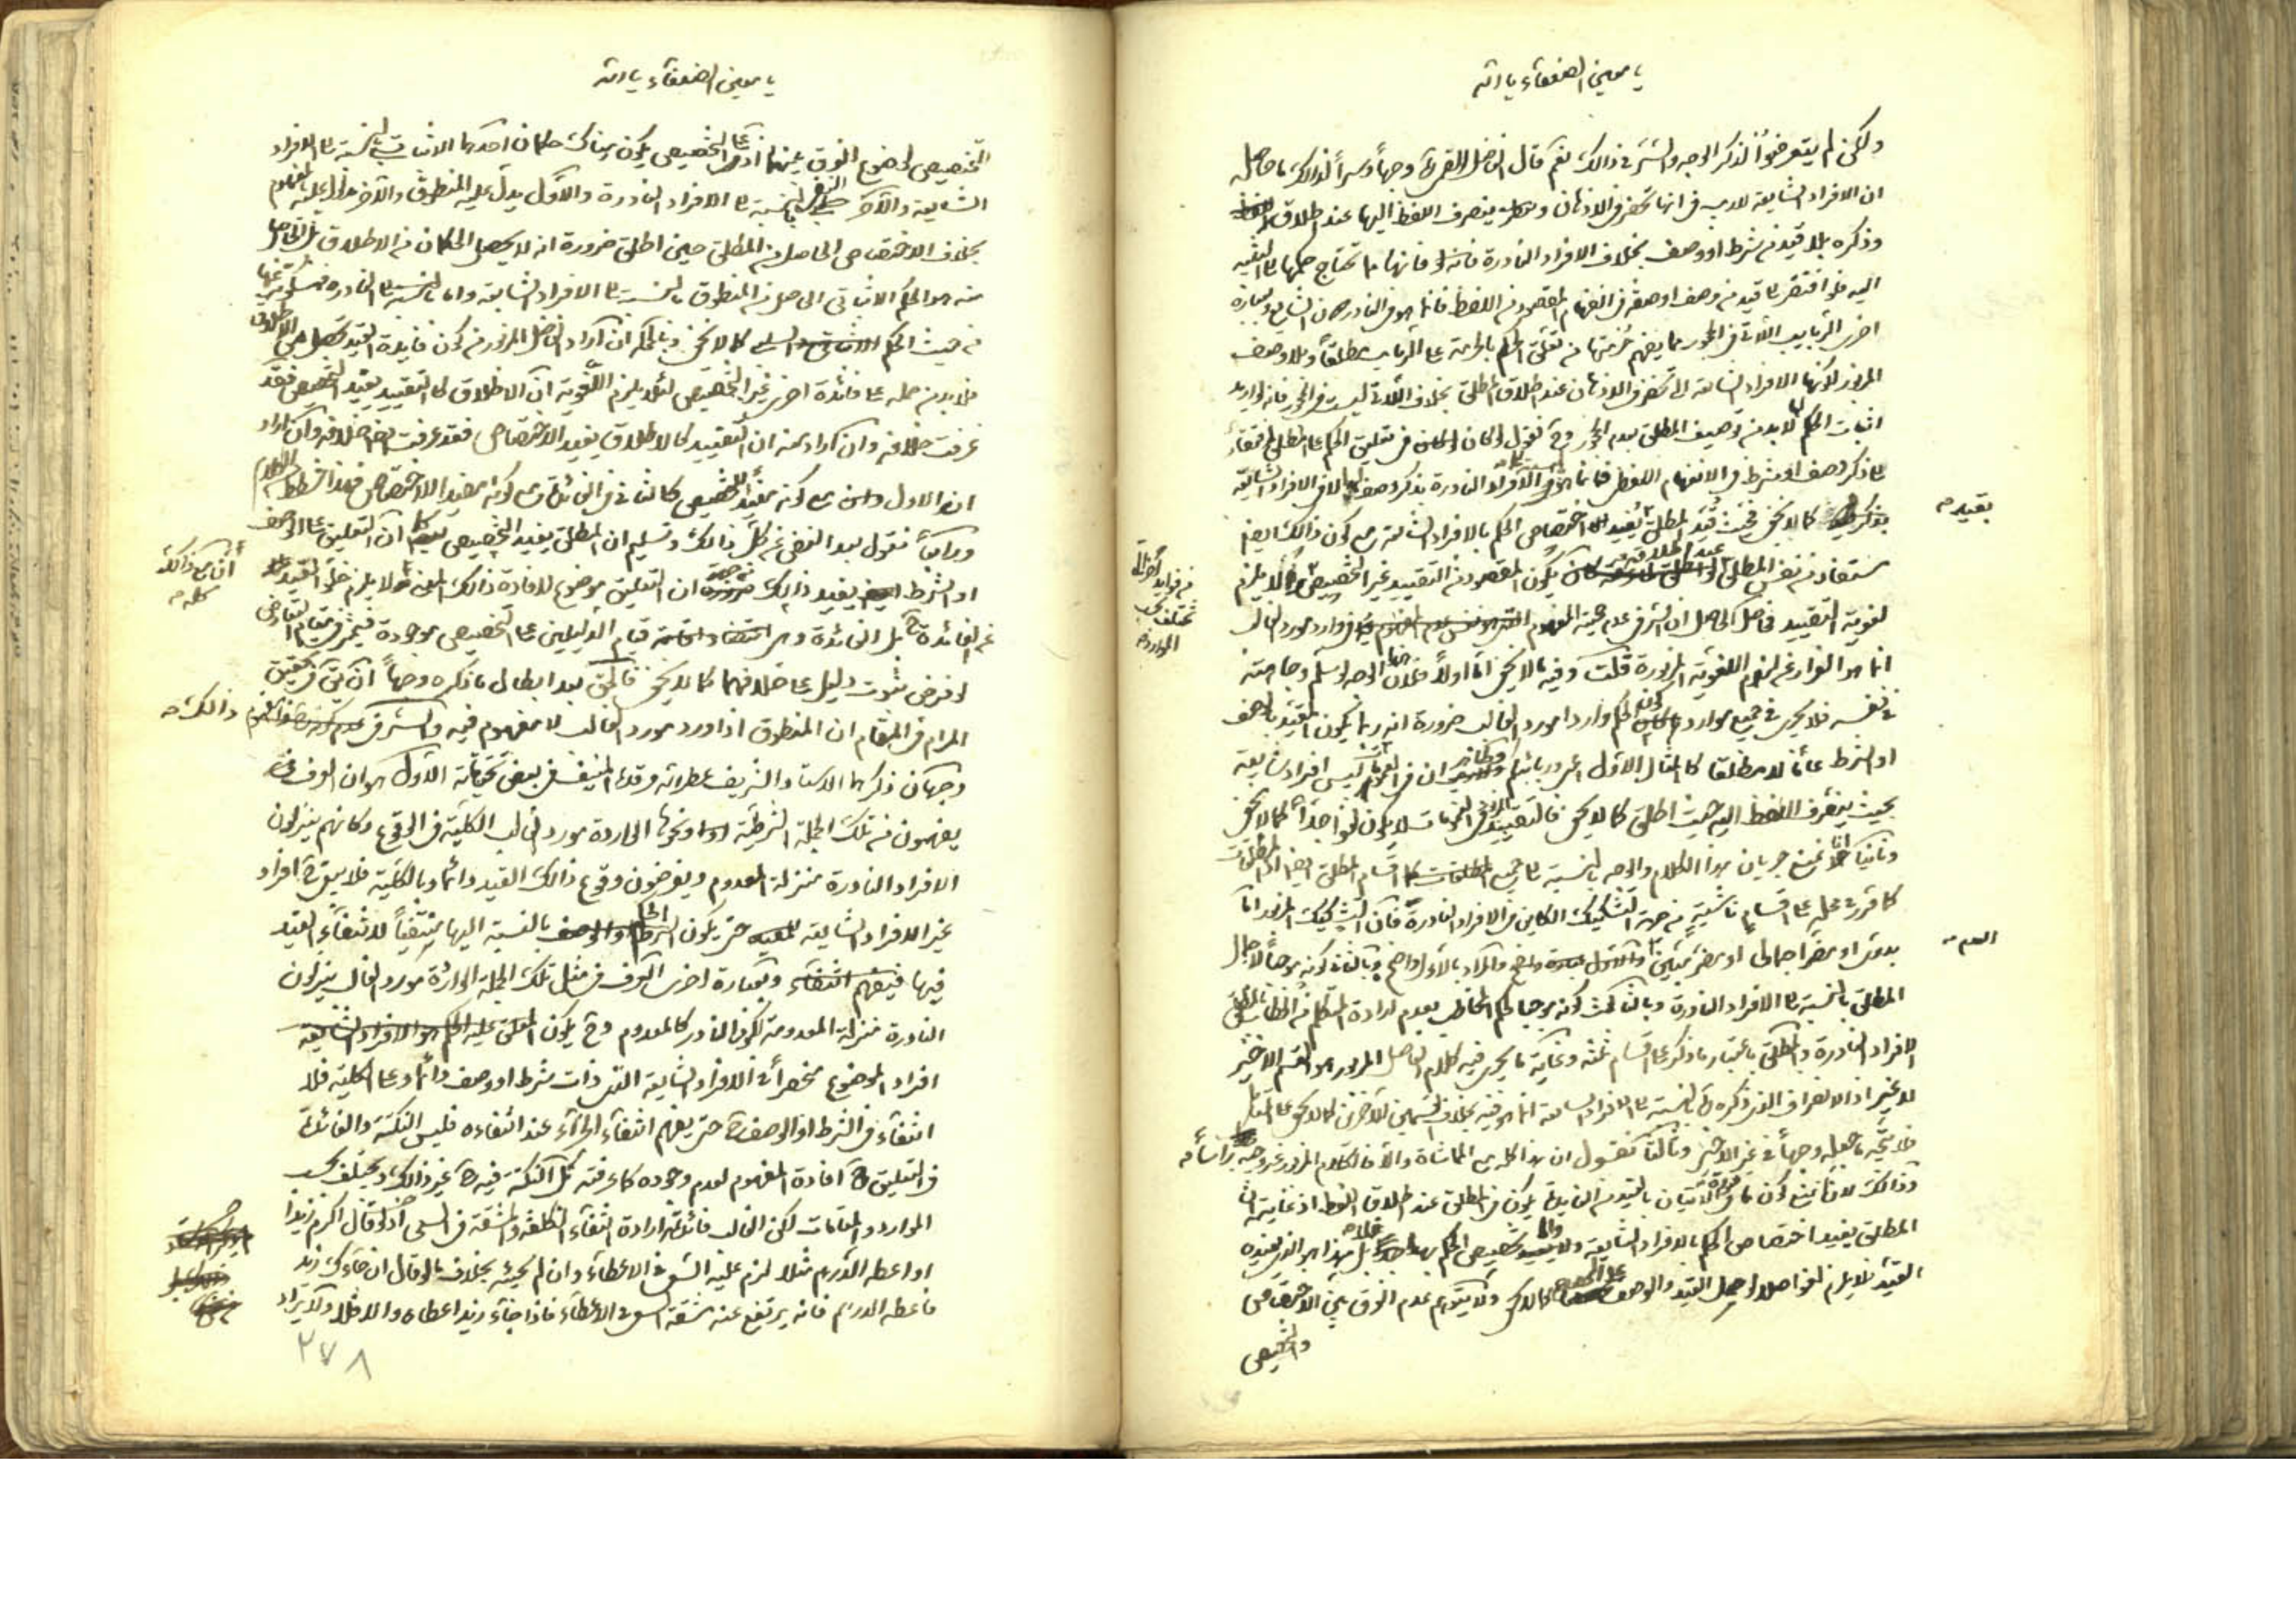 يا معين الضعفاء يا الله
ولكن لم يتعرضوا لذكر الوجه والسر في ذالك نعم قال الفاضل وجهاً وسراً لذالك ما حاصله
ان الافراد الشايعة لا ريب في انها تحضر في الاذهان وينصرف اللفظ اليها عند اطلاق
وذكره بلا قيد من شرط او وصف بخلاف الافراد النادرة فانها مما تحتاج حملها الى التقييد
اليه فلو افتقر الى قيد من وصف او صفة في انفهام المقصود من اللفظ فانما هو في النادر دون الشايع وبعبارة
اخرى الربايب اللاتي في الحجور مما يفهم حرمتها من تعلق الحكم بالحرمة على الربايب مطلقاً وبلا وصف
المزبور لكونها الافراد الشايعة التي تحضر في الاذهان عند اطلاق المطلق بخلاف اللاتي ليست في الحجور فانه لو اريد
اثبات الحكم لها لابد من توصيف المطلق بعدم الحجور وح نقول لو كان في تعليق الحكم على المطلق افتقار
الى ذكر وصف او شرط في الانفهام اللفظي فانما هو في الافراد النادرة بذكر وصف لها لا في الافراد الشايعة
كما لا يخفى فحيث قيد المطلق يفيد اختصاص الحكم بالافراد الشايعة مع كون ذالك ايضا
بقيده
مستفاد من نفس المطلق عند اطلاقه يكون المقصود من التقييد غير التخصيص لئلا يلزم
من فوايد اخرى التي تختلف بحسب الموارد
لغوية التقييد فحاصل الحاصل ان السر في عدم حجية المفهوم في وارد مورد الغالب
انما هو الفرار عن لزوم اللغوية المزبورة قلت وفيه ما لا يخفى اما اولاً فلان هذا الوجه لو سلم وجاهته
في نفسه فلا يجري في جميع موارد كون الحكم وارداً مورد الغالب ضرورة انه ربما يكون المقيد بالوصف
او الشرط عاماً لا مطلقا كما في المثال الاول اعني وربائبكم ان في العموم ليس افراد شايعة
بحيث ينصرف اللفظ اليه حيث اطلق كما لا يخفى فالتقييد في العمومات لا يكون لغوا جداً كما لا يخفى
وثانياً انا نمنع جريان هذا الكلام والوجه بالنسبة الى جميع اقسام المطلق ايضا اذ المطلقات
كما قرر في محله على اقسام ناشية من جهة التشكيك الكاين في الافراد النادرة فان التشكيك المزبور اما
بدوي او مضر اجمالي او مضر مبين والمراد بالاول واضح وبالثاني كونه موجباً لاجمال
المطلق بالنسبة الى الافراد النادرة وبالثالث كونه موجبا لحكم المخاطب بعدم ارادة المتكلم من الخطاب بالمطلق
الافراد النادرة والمطلق باعتبار ما ذكر على اقسام ثلثة وغاية ما يجري فيه كلام الفاضل المزبور هو القسم الاخير
لا غير اذ الانصراف الذي ذكره بالنسبة الى الافراد الشايعة انما هو فيه بخلاف القسمين الآخرين كما لا يخفى على المتامل
فلا يتجه ما جعله وجهاً في غير الاخير وثالثاً نقول ان هذا كله مع المماشاة والا فالكلام المزبور غير وجيه رأساً
وذالك لانا نمنع كون فايدة الاتيان بالقيد يكون في المطلق عند اطلاق اللفظ اذ غاية
المطلق يفيد اختصاص الحكم بالافراد الشايعة تخصيص الحكم بها بل هذا هو الذي يفيده
القيد فلا يلزم لغوا اصلا لو حمل القيد والوصف على التخصيص كما لا يخفى ولا يتوهم عدم الفرق بين الاختصاص
والتخصيص
يا معين الضعفاء يا الله
التخصيص لوضوح الفرق بينهما اذ على التخصيص يكون هناك حكمان احدهما الاثبات بالنسبة الى الافراد
الشايعة والآخر النفي بالنسبة الى الافراد النادرة والاول يدل عليه المنطوق والآخر يدل عليه المفهوم
بخلاف الاختصاص الحاصل من المطلق حين اطلق ضرورة انه لا يحصل الحكمان من الاطلاق بل الحاصل
منه هو الحكم الاثباتي الحاصل من المنطوق بالنسبة الى الافراد الشايعة واما بالنسبة الى النادرة فمسكوت عنها
من حيث الحكم كما لا يخفى وبالجملة ان اراد الفاضل المزبور من كون فايدة القيد تحصل من الاطلاق
فلابد من حمله على فائدة اخرى غير التخصيص لئلا يلزم اللغوية ان الاطلاق كالتقييد يفيد التخصيص فقد
عرفت خلافه وان اراد منه ان التقييد كالاطلاق يفيد الاختصاص فقد عرفت ايضا خلافه وان اراد
ان الاول مع كونه مفيداً للتخصيص كالثاني في الثاني مع كونه مفيدا للاختصاص فهذا خبط
ورابعاً نقول بعد الغض عن كل ذالك وتسليم ان المطلق يفيد التخصيص ان التعليق على الوصف
او الشرط يفيد ذالك من جهة ان التعليق موضوع لافادة ذالك المعنى فلا يلزم خلو التقييد
عن الفائدة بل الفائدة وهي قيام الدليلين على التخصيص موجودة فيثمر في مقام التعارض
لو فرض ثبوت دليل على خلافهما كما لا يخفى فالحق بعد ابطال ما ذكره وجهاً ان يق في تحقيق
المرام في المقام ان المنطوق اذا ورد مورد الغالب لا مفهوم فيه والسر في ذالك
وجهان ذكرهما الاستاد الشريف عطر الله مرقده المنيف في بعض تحقيقاته الاول هو ان العرف
يفهمون من تلك الجملة الشرطية ونحوها الواردة مورد الغالب الكلية في الوقوع وكانهم ينزلون
الافراد النادرة منزلة المعدوم ويفرضون وقوع ذالك القيد دائما وبالكلية فلا يبقى ح افراد
غير الافراد الشايعة حتى يكون الحكم بالنسبة اليها منتفياً لانتفاء القيد
فيها وبعبارة اخرى العرف في مثل تلك الجملة الواردة مورد الغالب ينزلون
النادرة منزلة المعدومة لكون النادر كالمعدوم وح يكون المعلق عليه الحكم هو الافراد الشايعة
افراد الموضوع منحصراً في الافراد الشايعة التي ذات شرط او وصف دائما وعلى الكلية فلا
انتفاء في الشرط او الوصف ح حتى يفهم انتفاء الجزاء عند انتفاءه فليس النكتة والفائدة
في التعليق ح افادة المفهوم لعدم وجوده كما عرفته بل النكتة فيه ح غير ذالك ويختلف بحسب
الموارد والمقامات لكن الغالب فائدته ارادة انتفاء الكلفة والمشقة في السعي اذ لو قال اكرم زيدا
او اعطه الدرهم مثلا لزم عليه السعي في الاعطاء وان لم يجيئه بخلاف ما لو قال ان جاءك زيد
فاعطه الدرهم فانه يرتفع عنه مشقة السعي في الاعطاء فاذا جاء زيد اعطاه والا فلا ولا يراد
٢٧٨